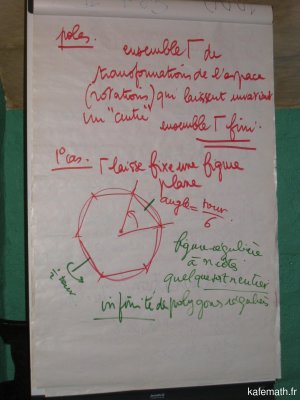 poles.
ensemble Γ de
transformations de l'espace
(rotations) qui laissent invariant
un "centre"
ensemble Γ fini.
1º cas. Γ laisse fixe une figure
plane
angle = tour/6
figure régulière
à n côtés
quelque soit n entier
infinité de polygones réguliers
kafemath.fr